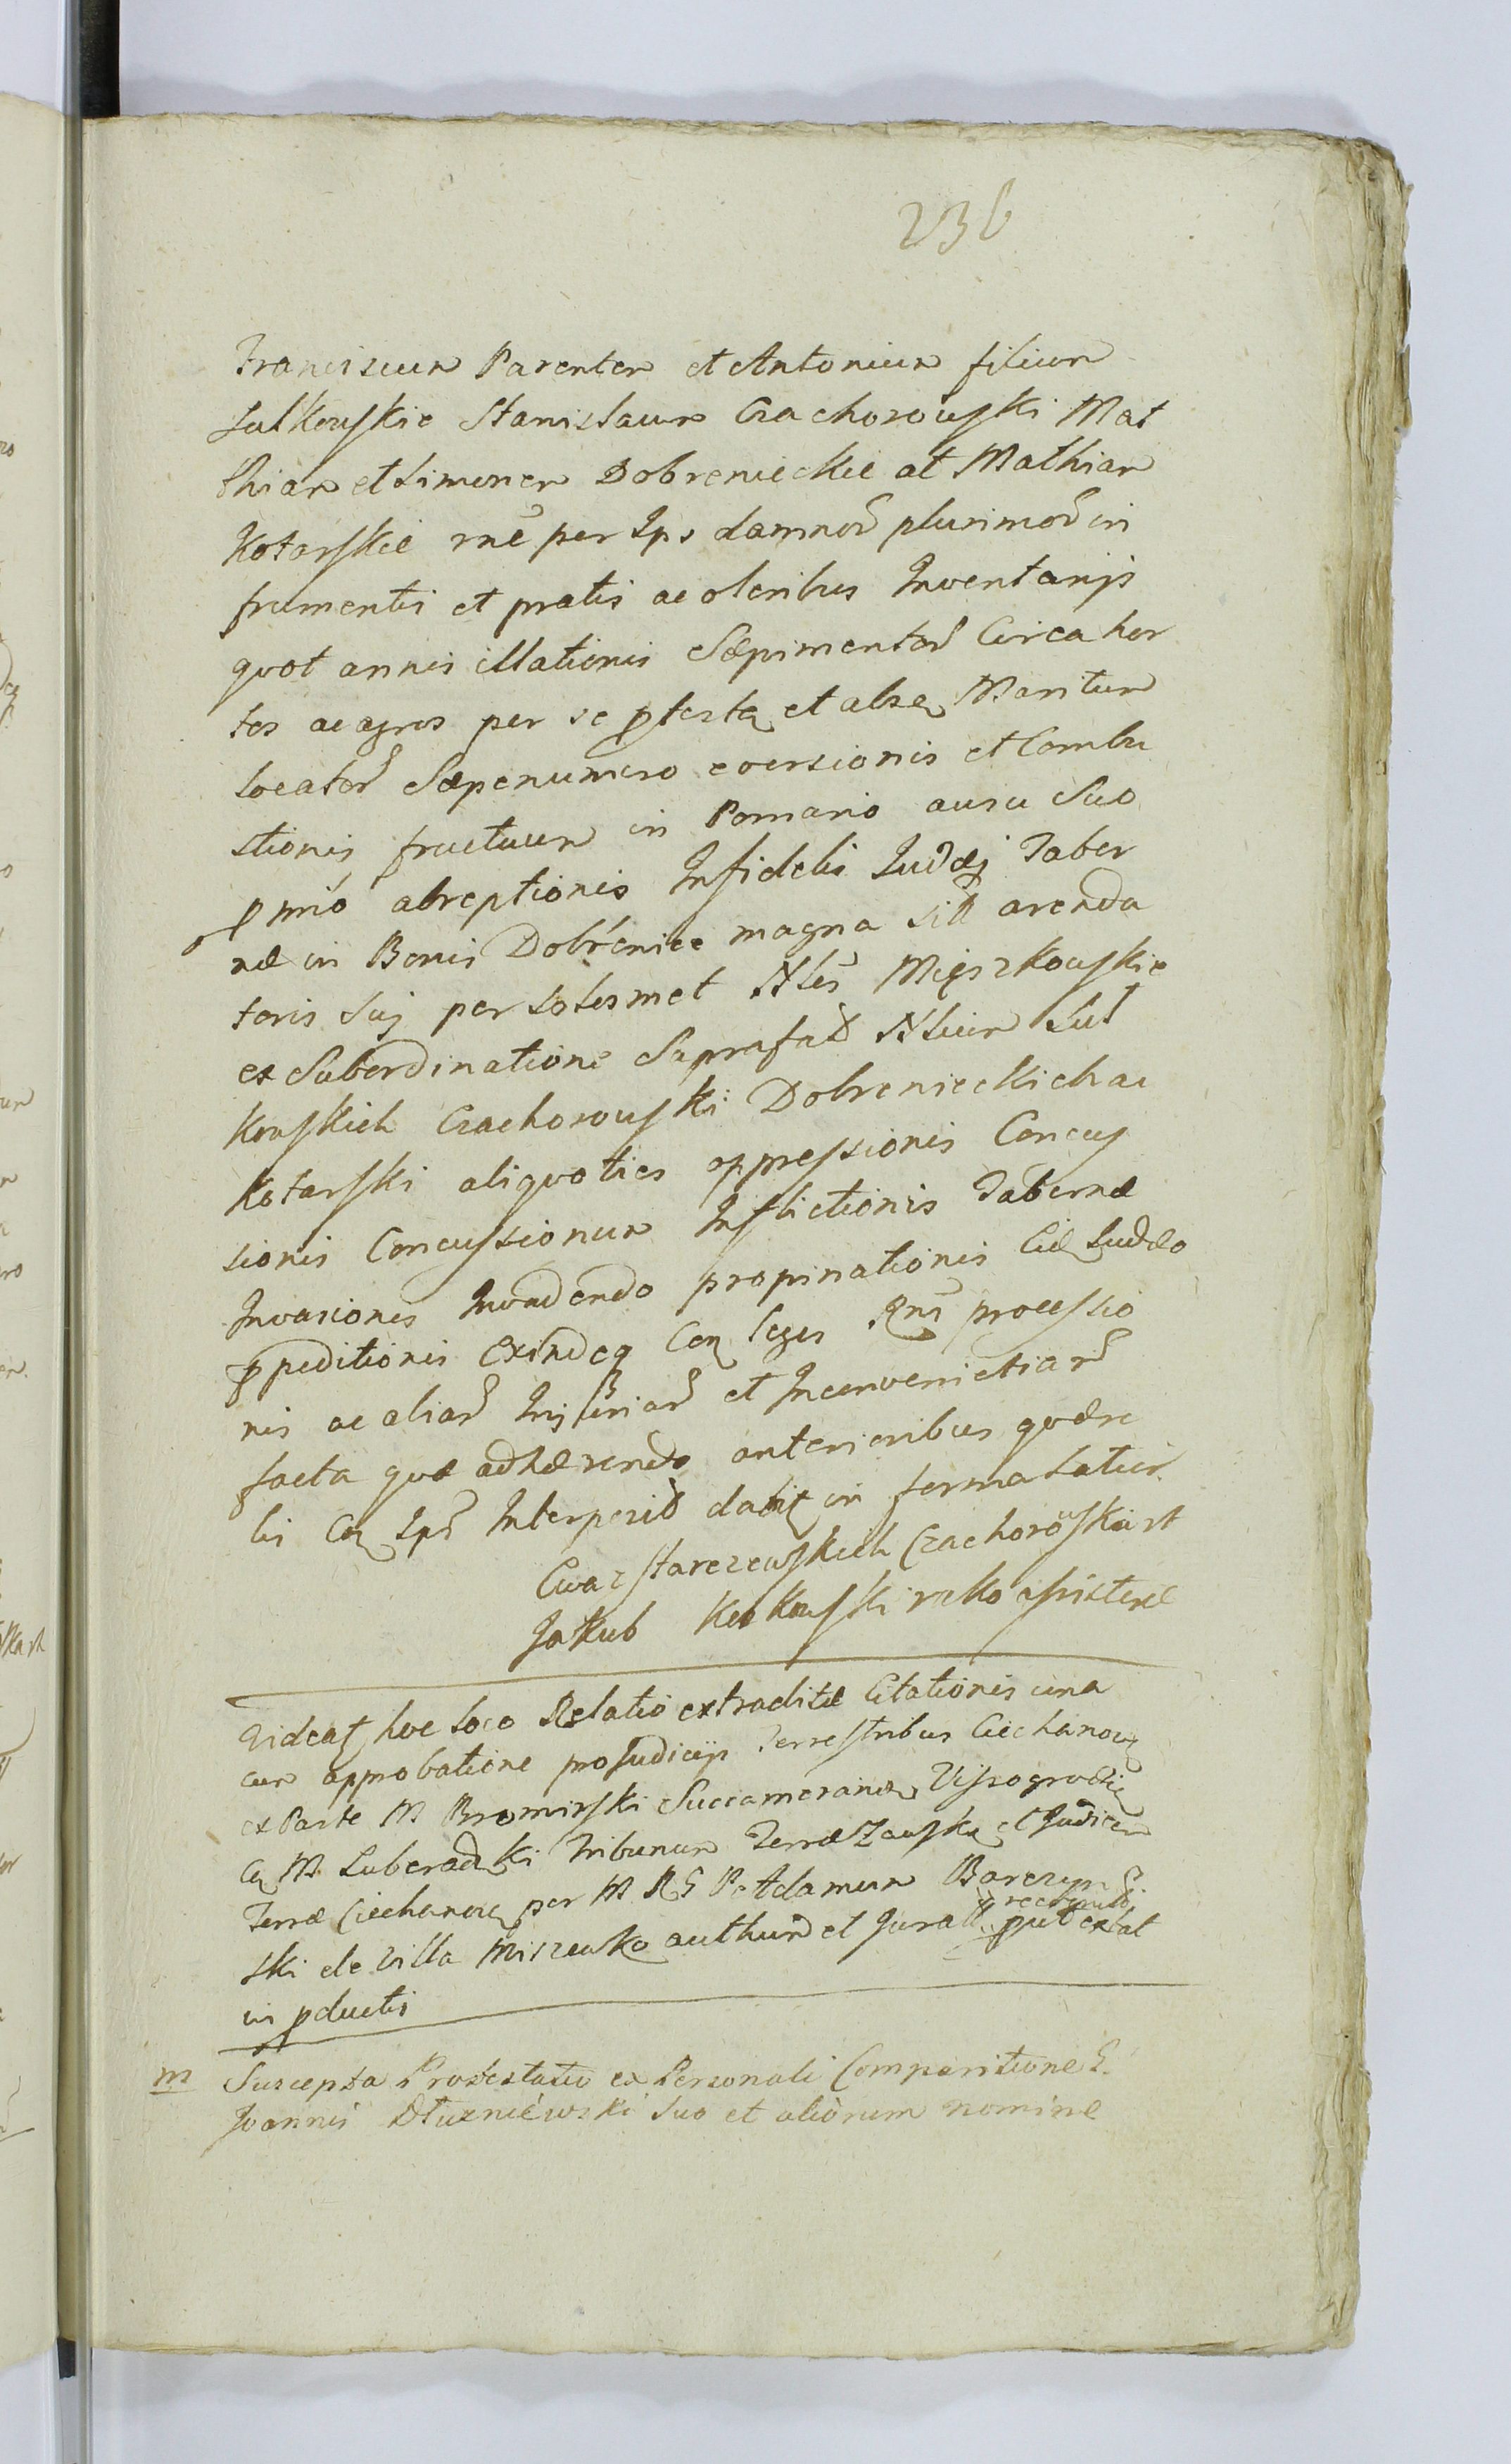 236
Franciscum Parentem et Antonium filium
Sulkowskie Stanislaum Czachorowski Mat
thiam et Simonem Dobrenieckie at Mathiam
Kotarskie rñe per Ips damnor̃ plurimor̃ in
frumentis et pratis ac oleribus Inventarijs
quot annis illationis Sæpimentor̃ Circa hor
tos ac agros per se ꝑ et absq Maritum
locator̃ Sæpenumero eversionis et Combu
stionis fructuum in Pomario ausu Suo
ꝑ mio abreptionis Infidelis Judæj Taber
næ in Bonis Dobrenice magna sitt arenda
toris Suj per Solosmet Nles Mięszkowskie
ex Subordinatione Suprafatt Nlium Sul
kowskich Czachorowski Dobrenieckich ac
Kotarski aliquoties oppressionis Concus
sionis Concussionum Inflictionis Tabernæ
Invasionis Invadendo propinationis Judæo
ꝑpeditionis Exindeq Con leges Rni processio
nis ac aliar̃ Injuriar̃ et Inconvenietiar̃
facta quæ adhærendo anterioribus quære
lis Con Ips Interposit in forma Latior
Ewa z Starczewskich Czachoroskast
Jakub Kotkowski iako assistent
Videatq hoc loco Relatio extraditæ Citationis una
cum approbatione pro Judicijs Terrestribus Ciechanov
ex Parte M Bromirski Succameranda Vissogrod
Con M Luberadzki Tribunum Terræ Zawska et Judicem
Terræ Ciechanov per M RG P Adamum Barczyn
recognit
ski de Villa Miszewko authum et Jurat put extat
in ꝑductis
m Suscepta Protestatio ex Personali Comparitione G.
Joannis Dłuzniewski Suo et aliorum nomine